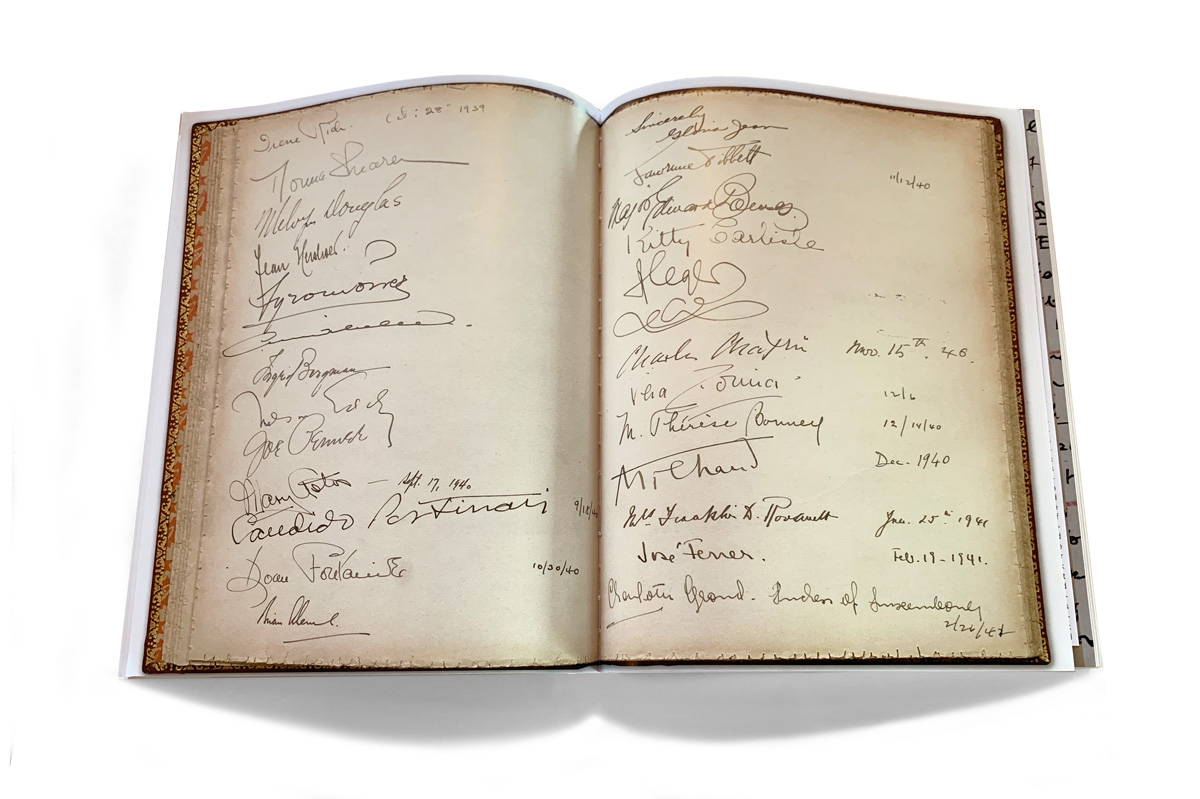 Irene Rich. Oct: 28 1939
Norma Shearer
Melvyn Douglas
Jean Hersholt.
Tyrone Power
Ingrid Bergman
Nelson Eddy
Joe Penner
— Sept. 17, 1940
Candido Portinari
Joan Fontaine 10/30/40
Brian Aherne.
Sincerely
Gloria Jean
Lawrence Tibbett
11/12/40
Edward
Kitty Carlisle
Charles Chaplin Nov. 15th. 40.
Vera Zorina 12/6
M. Thérèse Bonney 12/14/40
Dec. 1940
Mrs Franklin D. Roosevelt Jan. 25th 1941
José Ferrer. Feb. 19 - 1941.
Charlotte Grand. Duchess of Luxembourg
2/26/41